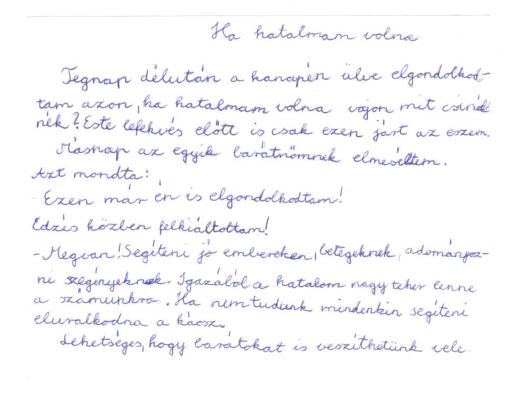 Ha hatalmam volna
Tegnap délután a kanapén ülve elgondolkod-
tam azon, ha hatalmam volna vajon mit csinál
nék? Este lefekvés előtt is csak ezen járt az eszem.
Másnap az egyik barátnőmnek elmeséltem.
Azt mondta:
- Ezen már én is elgondolkodtam!
Edzés közben felkiáltottam!
- Megvan! Segíteni jó embereken, betegeknek, adományoz-
ni szegényeknek. Igazából a hatalom nagy teher lenne
a számunkra. Ha nem tudunk mindenkin segíteni
eluralkodna a káosz.
Lehetséges, hogy barátokat is veszíthetünk vele.